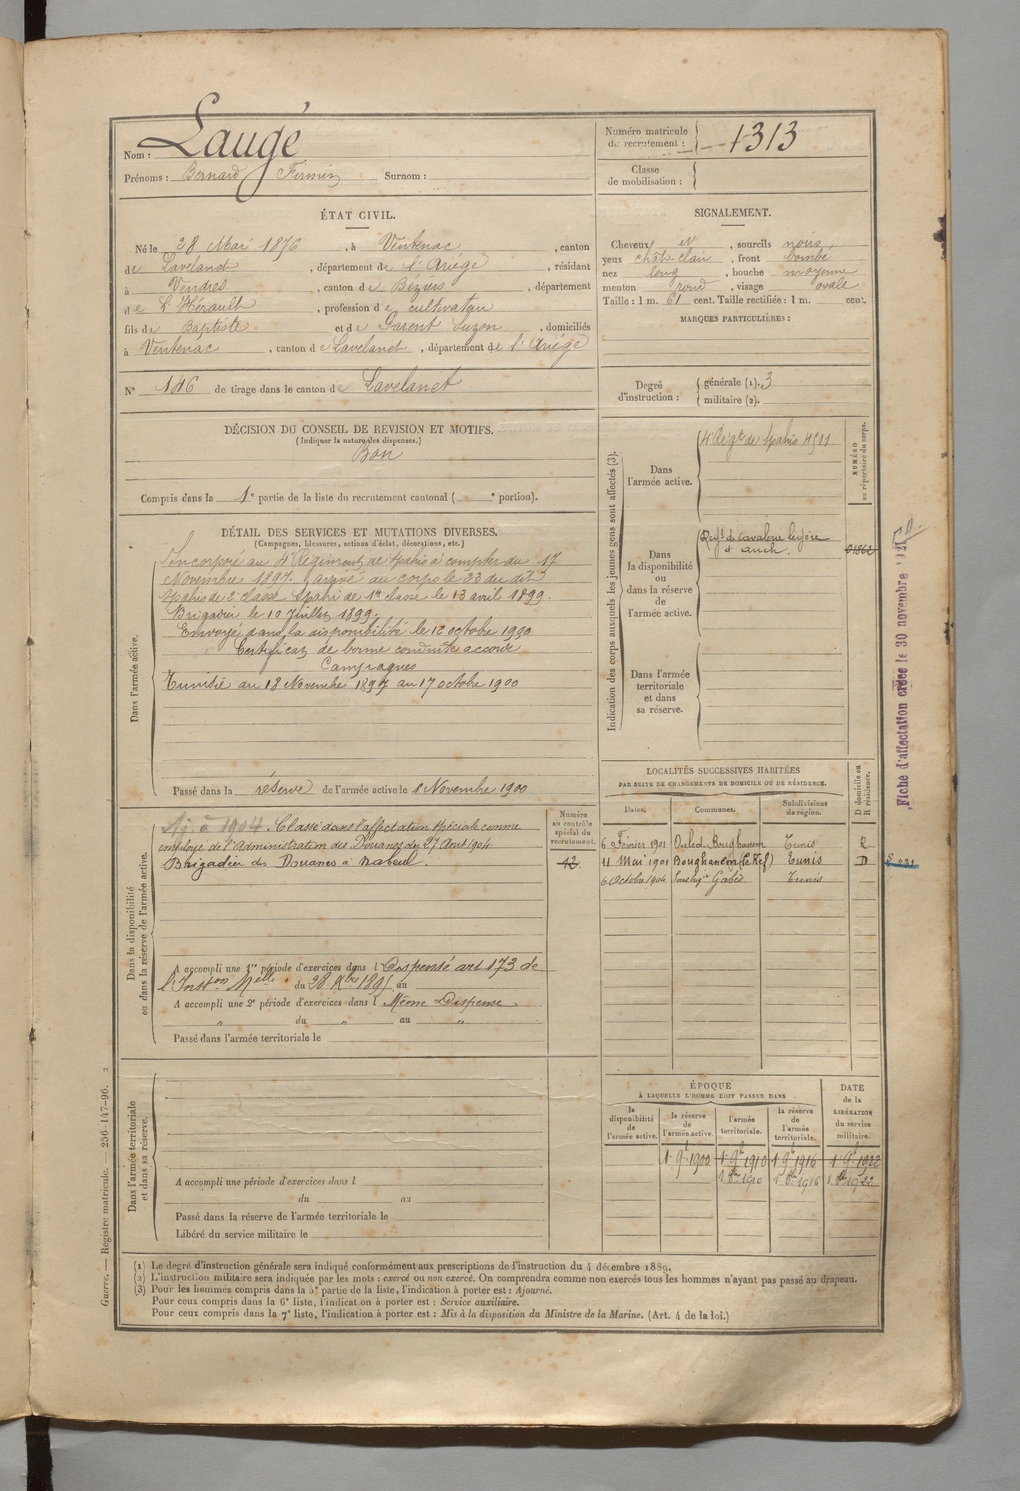 Nom : Laugé
Prénoms : Bernard Firmin Surnom :
Numéro matricule
de recrutement : 1313
Classe
de mobilisation :
ÉTAT CIVIL.
Né le 28 Mai 1876, à Ventenac, canton
de Lavelanet, département de l'Ariège, résidant
à Vendres, canton de Béziers, département
de L'Hérault, profession de cultivateur
fils de Baptiste et de Suzon, domiciliés
à Ventenac, canton de Lavelanet, département de l'Ariège
N° 146 de tirage dans le canton de Lavelanet
SIGNALEMENT.
Cheveux et, sourcils noirs,
yeux chât. clair, front bombé
nez long, bouche moyenne
menton rond, visage ovale
Taille : 1 m. 61 cent. Taille rectifiée : 1 m. cent.
MARQUES PARTICULIÈRES :
Degré
d'instruction :
générale (1). 3
militaire (2).
DÉCISION DU CONSEIL DE REVISION ET MOTIFS.
(Indiquer la nature des dispenses.)
Bon
Compris dans la 1e partie de la liste du recrutement cantonal ( e portion).
DÉTAIL DES SERVICES ET MUTATIONS DIVERSES.
(Campagnes, blessures, actions d'éclat, décorations, etc.)
Dans l'armée active.
Incorporé au 4e Régiment de Spahis à compter du 17
Novembre 1897, arrivé au corps le 23 du dit
Spahis de 2e classe. Spahi de 1re classe le 13 avril 1899.
Brigadier le 10 Juillet 1899.
Envoyé dans la disponibilité le 12 octobre 1900
Certificat de bonne conduite accordé
Campagnes
Tunisie du 18 Novembre 1897 au 17 octobre 1900
Passé dans la réserve de l'armée active le 1r Novembre 1900
Indication des corps auxquels les jeunes gens sont affectés (3).
NUMÉRO
au répertoire du corps.
Dans
l'armée active.
4e Régt de Spahis 4511
Dans
la disponibilité
ou
dans la réserve de
l'armée active.
Régt de Cavalerie légère
d'Auch.
01862
Dans l'armée
territoriale
et dans
sa réserve.
Fiche d'affectation créée le 30 novembre
Dans la disponibilité
ou dans la réserve de l'armée active.
Numéro
au contrôle
spécial du
recrutement.
12
Aj. à 1904. Classé dans l'affectation spéciale comme
employé de l'Administration des Douanes du 27 Août 1904
Brigadier des Douanes à Nabeul.
A accompli une 1re période d'exercices dans l Dispensé art 173 de
l'Inston Melle du 28 Xbre 1895 au
A accompli une 2e période d'exercices dans l Même Dispense
" du " au "
Passé dans l'armée territoriale le
LOCALITÉS SUCCESSIVES HABITÉES
PAR SUITE DE CHANGEMENTS DE DOMICILE OU DE RÉSIDENCE.
Dates. Communes. Subdivisions
de région.
D domicile ou
R résidence.
6 Février 1901 Ouled-Boughanem Tunis R
11 Mai 1901 Boughanem (Le Kef) Tunis D
6 Octobre 1904 Gabès Tunis
Dans l'armée territoriale
et dans sa réserve.
A accompli une période d'exercices dans l
du au
Passé dans la réserve de l'armée territoriale le
Libéré du service militaire le
ÉPOQUE
À LAQUELLE L'HOMME DOIT PASSER DANS
la
disponibilité
de
l'armée active.
la réserve
de
l'armée active.
l'armée
territoriale.
la réserve
de
l'armée
territoriale.
DATE
de la
LIBÉRATION
du service
militaire.
1r 9b 1900 1r 9b 1910 1r 9b 1916 1r 9b 1922
1r 8bre 1910 1r 8bre 1916 1r 8bre 1922
(1) Le degré d'instruction générale sera indiqué conformément aux prescriptions de l'instruction du 4 décembre 1889.
(2) L'instruction militaire sera indiquée par les mots : exercé ou non exercé. On comprendra comme non exercés tous les hommes n'ayant pas passé au drapeau.
(3) Pour les hommes compris dans la 5e partie de la liste, l'indication à porter est : Ajourné.
Pour ceux compris dans la 6e liste, l'indication à porter est : Service auxiliaire.
Pour ceux compris dans la 7e liste, l'indication à porter est : Mis à la disposition du Ministre de la Marine. (Art. 4 de la loi.)
Guerre. — Registre matricule. — 256-147-96.